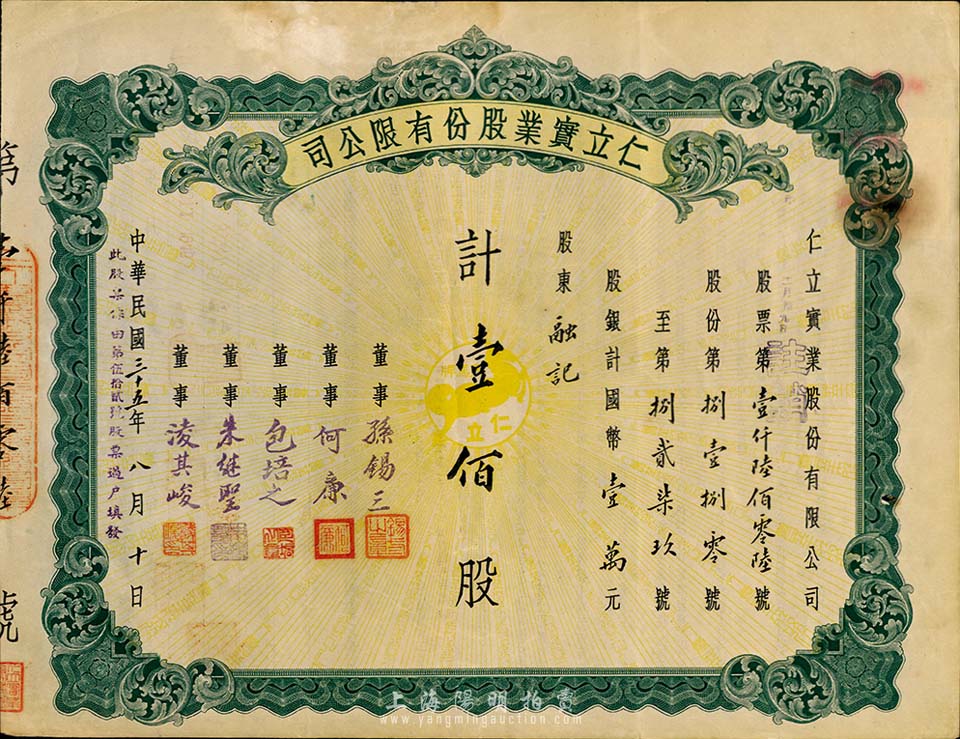 仁立實業股份有限公司
仁立實業股份有限公司
股票第壹仟陸佰零陸號
股份第捌壹捌零號
至第捌貳柒玖號
股銀計國幣壹萬元
股東融記
計壹佰股
仁立
董事孫錫三
董事何廉
董事包培之
董事朱继聖
董事凌其峻
中華民國三十五年八月十日
此股票係由第伍拾貳號股票過户填發
第壹仟陸佰零陸號
註銷
上海陽明拍賣
www.yangmingauction.com